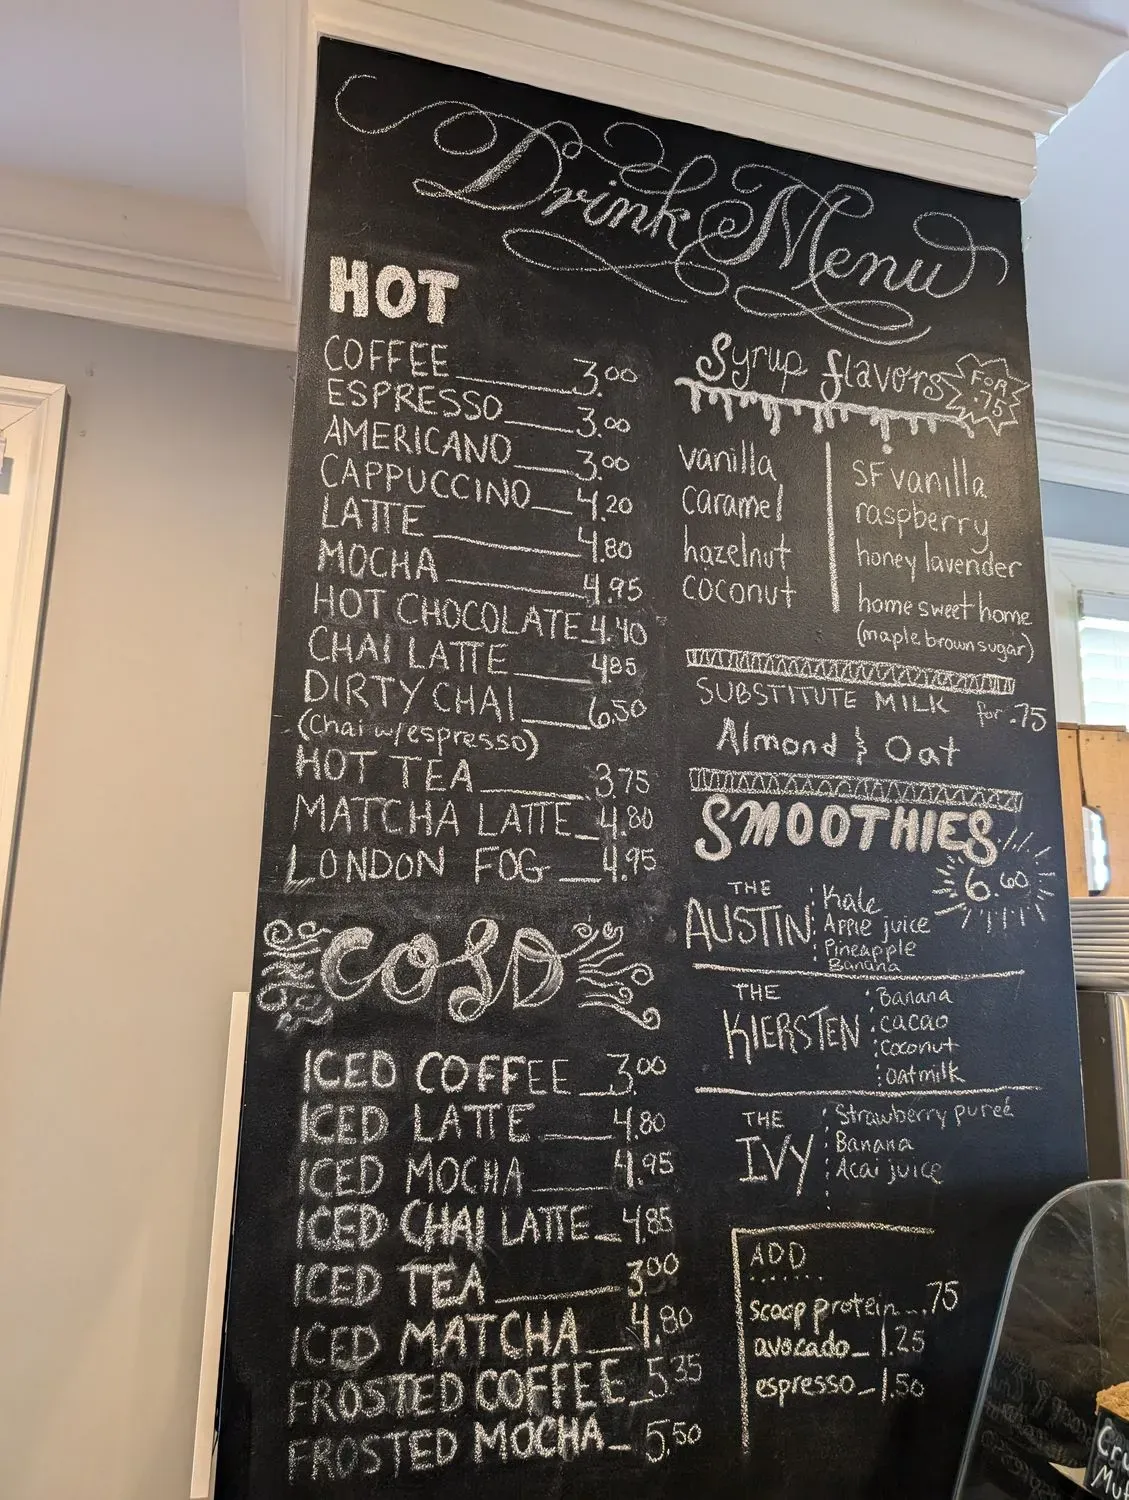 Drink Menu
HOT
COFFEE 3.00
ESPRESSO 3.00
AMERICANO 3.00
CAPPUCCINO 4.20
LATTE 4.80
MOCHA 4.95
HOT CHOCOLATE 4.40
CHAI LATTE 4.85
DIRTY CHAI 6.50
(chai w/espresso)
HOT TEA 3.75
MATCHA LATTE 4.80
LONDON FOG 4.95
COLD
ICED COFFEE 3.00
ICED LATTE 4.80
ICED MOCHA 4.95
ICED CHAI LATTE 4.85
ICED TEA 3.00
ICED MATCHA 4.80
FROSTED COFFEE 5.35
FROSTED MOCHA 5.50
Syrup flavors
FOR
.75
vanilla
caramel
hazelnut
coconut
SF vanilla
raspberry
honey lavender
home sweet home
(maple brown sugar)
SUBSTITUTE MILK for .75
Almond & Oat
SMOOTHIES
6.60
THE
AUSTIN
Kale
Apple juice
Pineapple
Banana
THE
KIERSTEN
Banana
cacao
Coconut
oatmilk
THE
IVY
Strawberry pureé
Banana
Acai juice
ADD
scoop protein .75
avocado 1.25
espresso 1.50